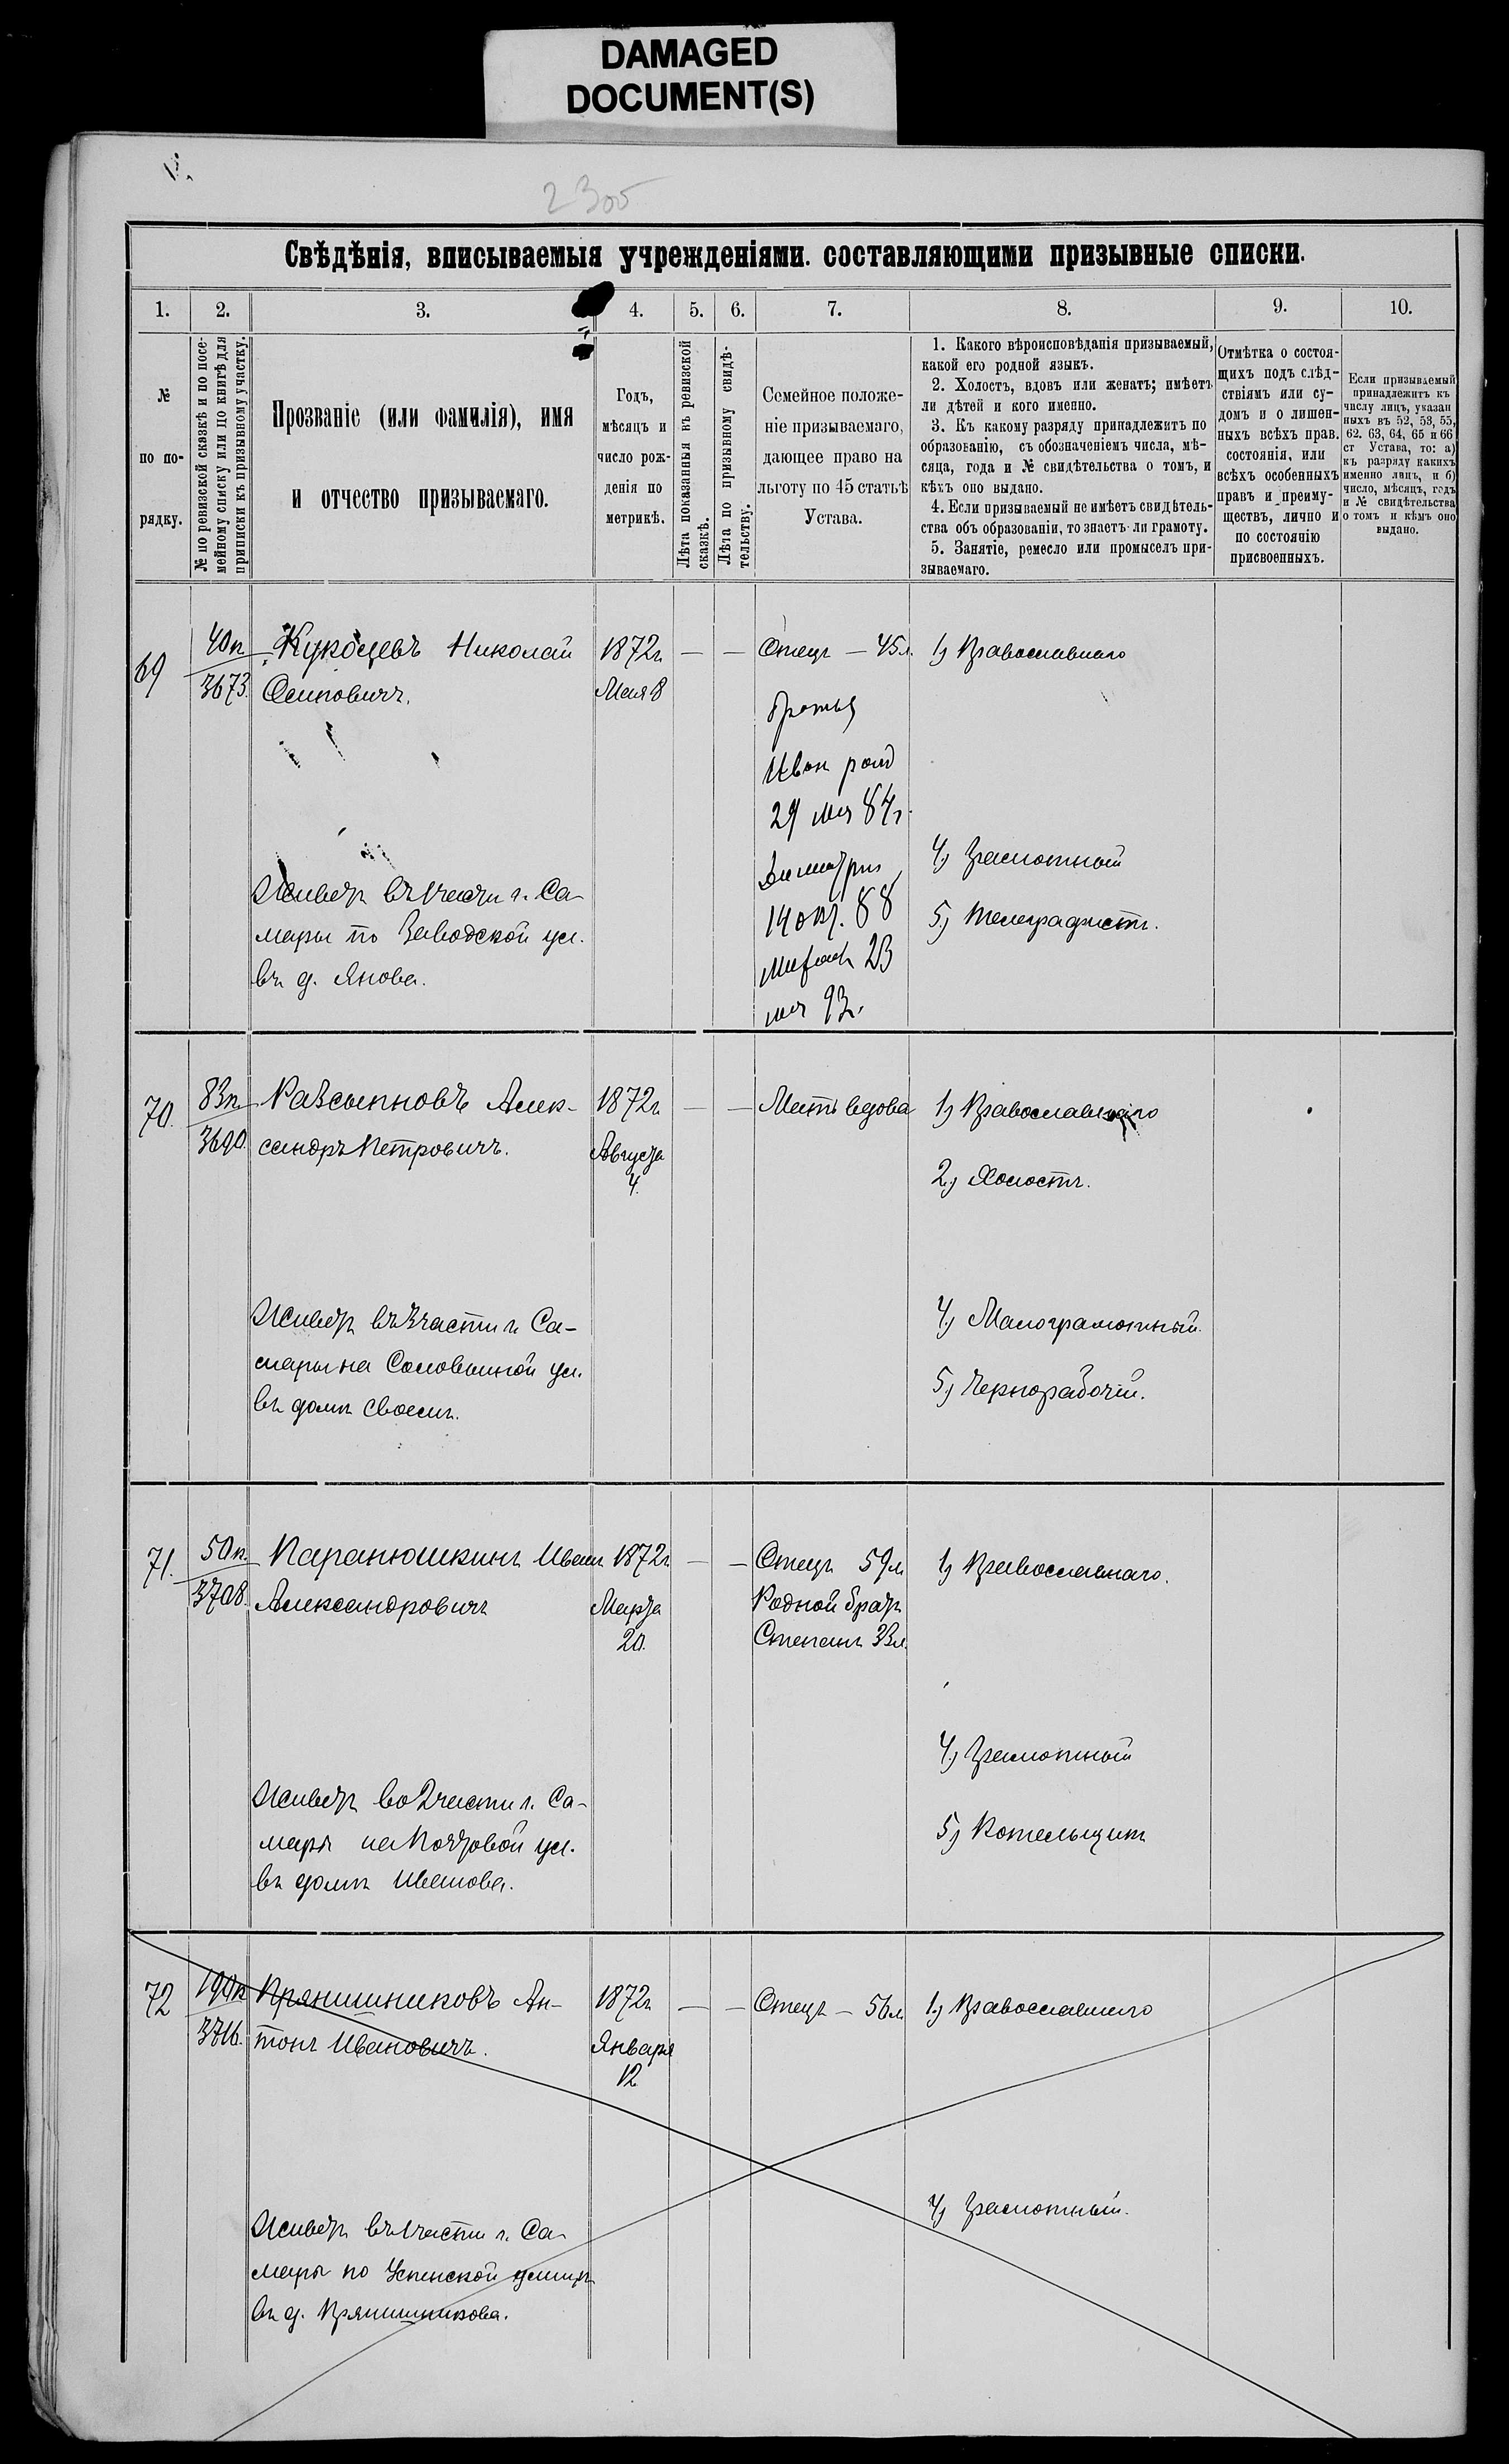 DAMAGED
DOCUMENT(S)
2305
Свѣдѣнія, вписываемыя учрежденіями. составляющими призывные списки.
1. 2. 3. 4. 5. 6. 7. 8. 9. 10.
№
по по-
рядку.
№ по ревизской сказкѣ и по посе-
мейному списку или по книгѣ для
приписки къ призывному участку.
Прозваніе (или фамилія), имя
и отчество призываемаго.
Годъ,
мѣсяцъ и
число рож-
денія по
метрикѣ.
Лѣта показанныя въ ревизской
сказкѣ.
Лѣта по призывному свидѣ-
тельству.
Семейное положе-
ніе призываемаго,
дающее право на
льготу по 45 статьѣ
Устава.
1. Какого вѣроисповѣданія призываемый,
какой его родной языкъ.
2. Холостъ, вдовъ или женатъ; имѣетъ
ли дѣтей и кого именно.
3. Къ какому разряду принадлежитъ по
образованію, съ обозначеніемъ числа, мѣ-
сяца, года и № свидѣтельства о томъ, и
кѣмъ оно выдано.
4. Если призываемый не имѣетъ свидѣтель-
ства объ образованіи, то знаетъ-ли грамоту.
5. Занятіе, ремесло или промыселъ при-
зываемаго.
Отмѣтка о состоя-
щихъ подъ слѣд-
ствіямъ или су-
домъ и о лишен-
ныхъ всѣхъ прав.
состоянія, или
всѣхъ особенныхъ
правъ и преиму-
ществъ, лично и
по состоянію
присвоенныхъ.
Если призываемый
принадлежитъ къ
числу лицъ, указан
ныхъ въ 52, 53, 55,
62. 63, 64, 65 и 66
ст Устава, то: а)
къ разряду какихъ
именно лицъ, и б)
число, мѣсяцъ, годъ
и № свидѣтельства
о томъ и кѣмъ оно
выдано.
69
40п
3673.
Николай
Осиповичъ.
1872г.
Мая 8
— —
Отецъ — 45л.
братья
Иван род
29 мая 84г.
Димитрій
14 окт. 88
23
мая 93г.
1) Православнаго
4) Грамотный
5) Телеграфистъ.
Живетъ въ 1 части г. Са-
мары по Заводской ул.
въ д. Янова.
70.
83п.
3690.
Разсыпновъ Алек-
сандръ Петровичъ.
1872г.
Августа
4.
— —
Мать вдова
1) Православнаго
2) Холостъ.
4) Малограмотный.
5) Чернорабочій.
Живетъ въ 3 части г. Са-
мары на Соловьиной ул.
въ домѣ своемъ.
71.
50п.
3708.
Паранюшкинъ Иванъ
Александровичъ
1872г.
Марта
20.
— —
Отецъ 59л.
Родной братъ
Степанъ 33л.
1) Православнаго.
4) Грамотный
5) Котельщикъ
Живетъ во 2 части г. Са-
мары на Почтовой ул.
въ домѣ Ивашова.
72
190п
3716.
Прянишниковъ Ан-
тонъ Ивановичъ.
1872г.
Января
12
— —
Отецъ — 56л.
1) Православнаго
4) Грамотный.
Живетъ въ 1 части г. Са-
мары по Успенской улицѣ
въ д. Прянишникова.